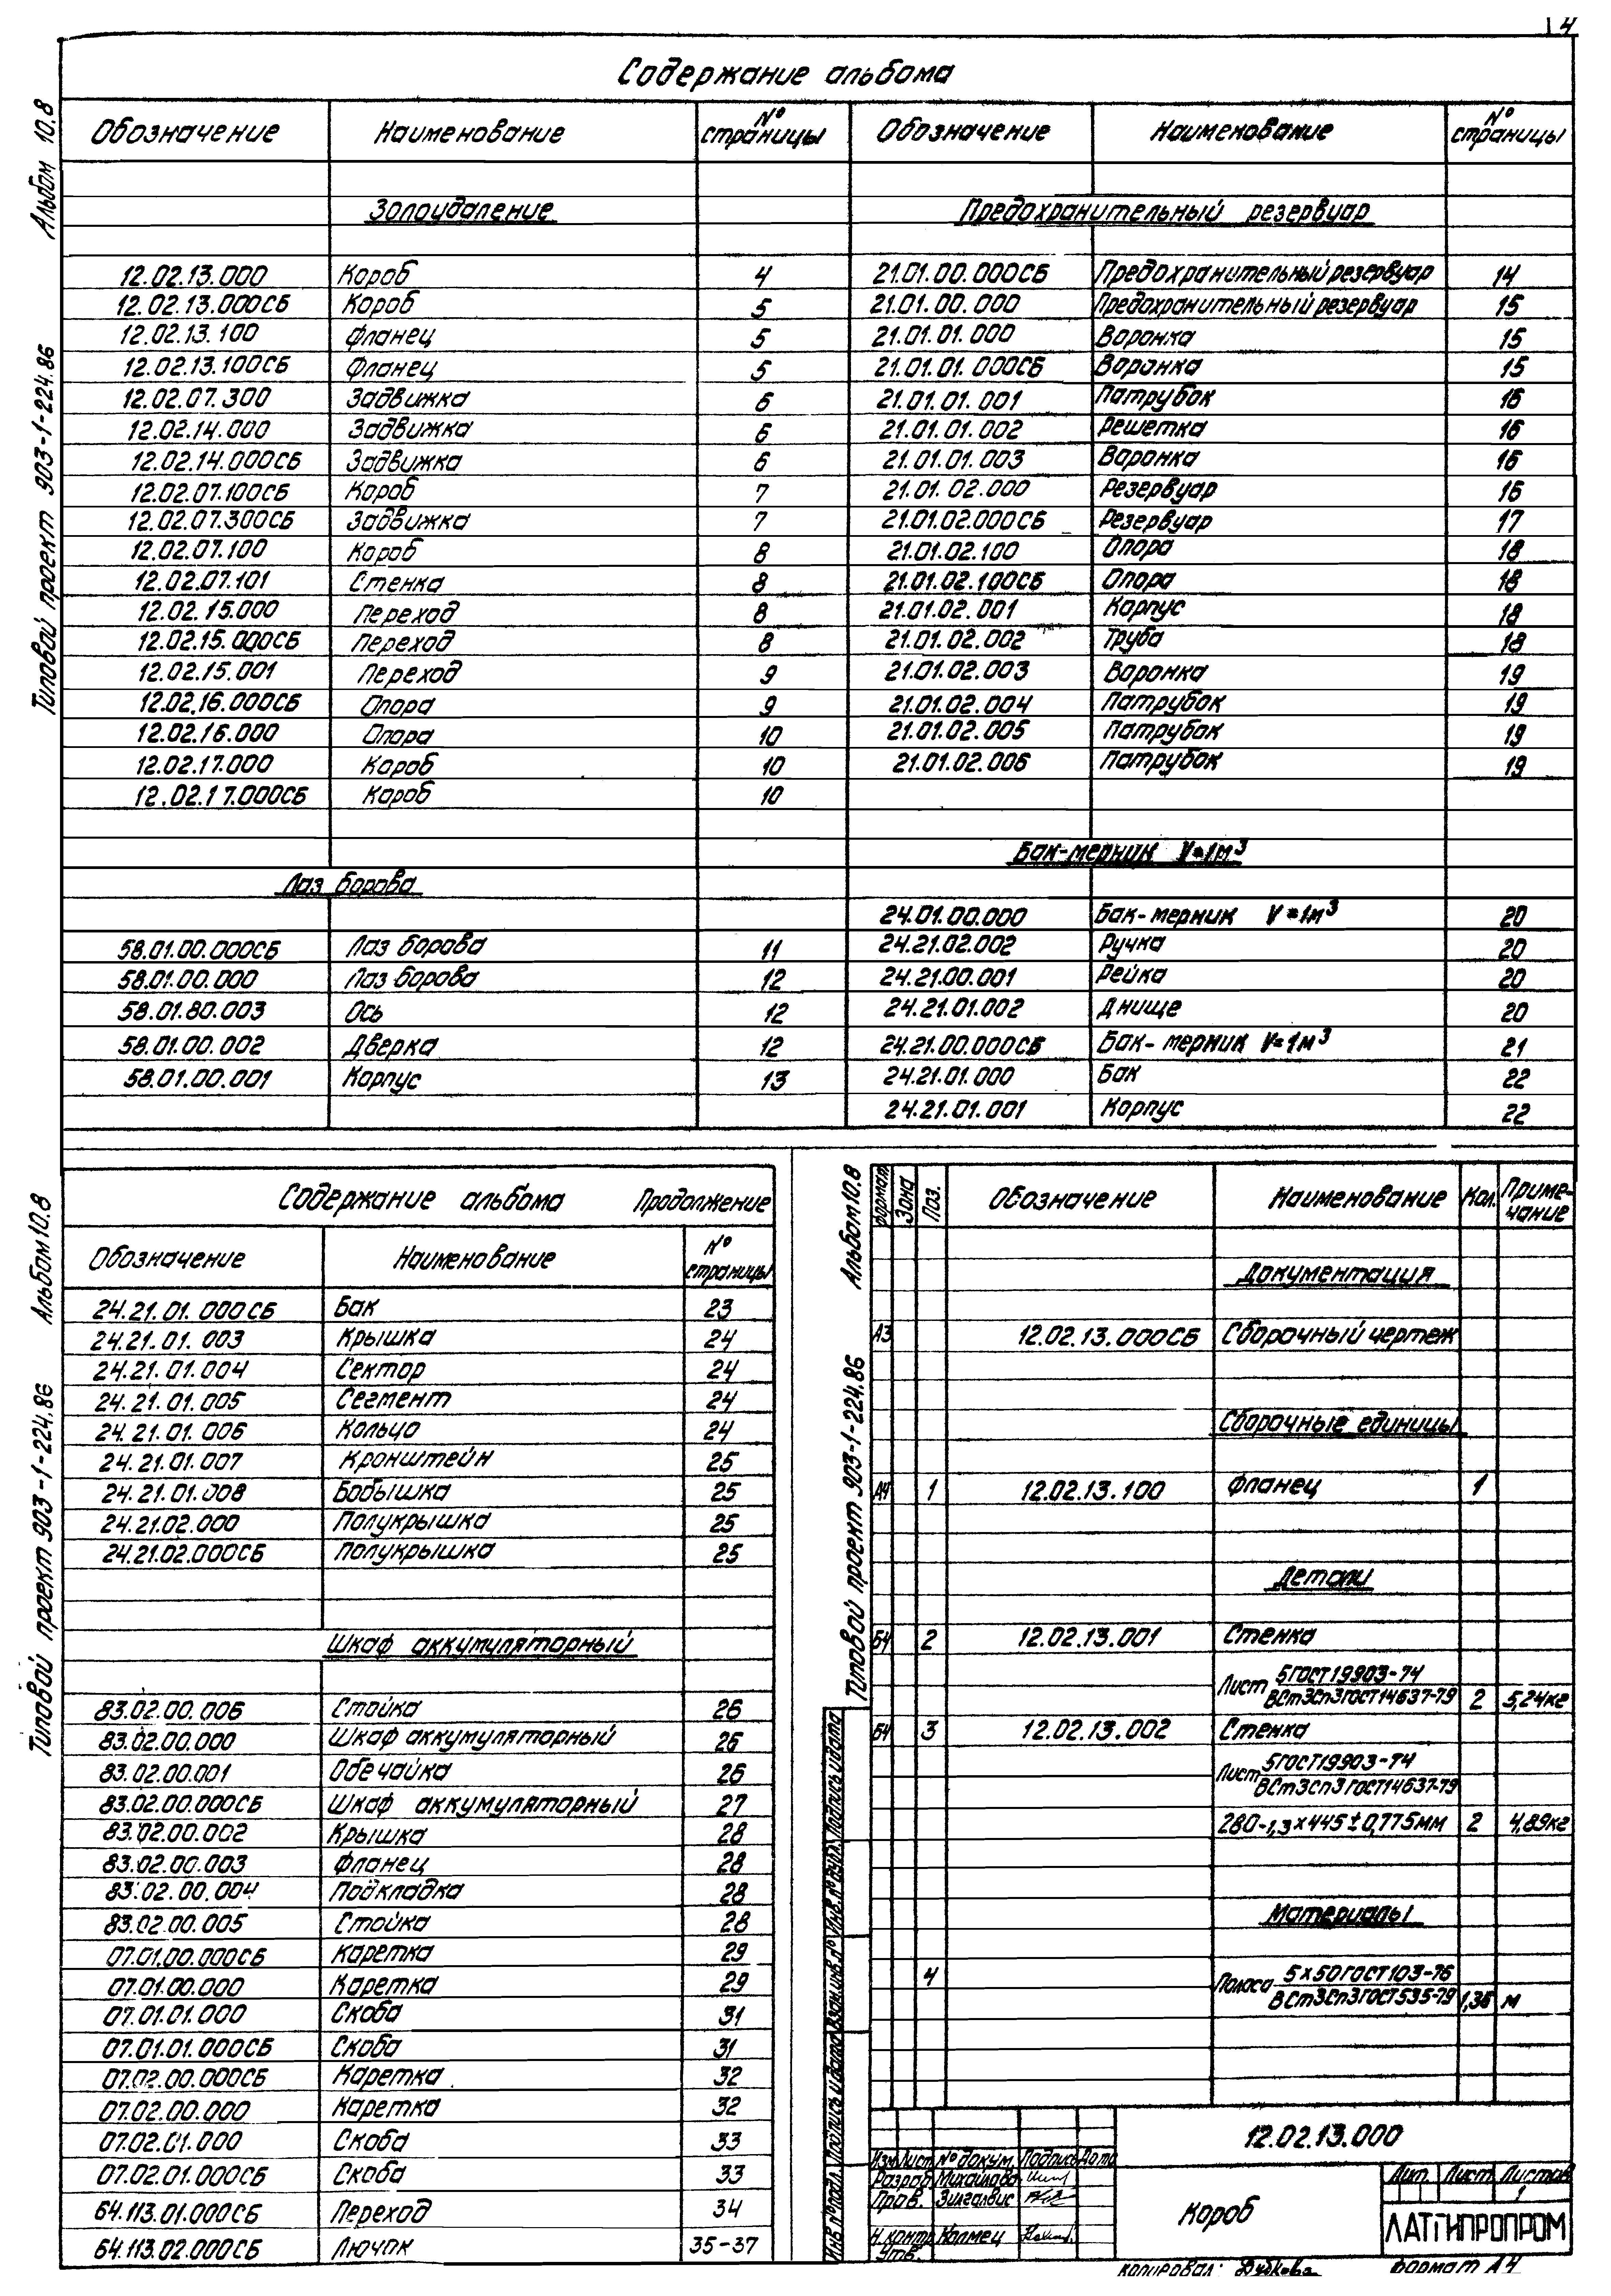 4
Содержание альбома
Альбом 10.8
Типовой проект 903-1-224.86
Обозначение Наименование № страницы Обозначение Наименование № страницы
Золоудаление Предохранительный резервуар
12.02.13.000 Короб 4 21.01.00.000СБ Предохранительный резервуар 14
12.02.13.000СБ Короб 5 21.01.00.000 Предохранительный резервуар 15
12.02.13.100 Фланец 5 21.01.01.000 Воронка 15
12.02.13.100СБ Фланец 5 21.01.01.000СБ Воронка 15
12.02.07.300 Задвижка 6 21.01.01.001 Патрубок 16
12.02.14.000 Задвижка 6 21.01.01.002 Решетка 16
12.02.14.000СБ Задвижка 6 21.01.01.003 Воронка 16
12.02.07.100СБ Короб 7 21.01.02.000 Резервуар 16
12.02.07.300СБ Задвижка 7 21.01.02.000СБ Резервуар 17
12.02.07.100 Короб 8 21.01.02.100 Опора 18
12.02.07.101 Стенка 8 21.01.02.100СБ Опора 18
12.02.15.000 Переход 8 21.01.02.001 Корпус 18
12.02.15.000СБ Переход 8 21.01.02.002 Труба 18
12.02.15.001 Переход 9 21.01.02.003 Воронка 19
12.02.16.000СБ Опора 9 21.01.02.004 Патрубок 19
12.02.16.000 Опора 10 21.01.02.005 Патрубок 19
12.02.17.000 Короб 10 21.01.02.006 Патрубок 19
12.02.17.000СБ Короб 10
Бак-мерник V=1м³
Лаз борова
24.01.00.000 Бак-мерник V=1м³ 20
58.01.00.000СБ Лаз борова 11 24.21.02.002 Ручка 20
58.01.00.000 Лаз борова 12 24.21.00.001 Рейка 20
58.01.80.003 Ось 12 24.21.01.002 Днище 20
58.01.00.002 Дверка 12 24.21.00.000СБ Бак-мерник V=1м³ 21
58.01.00.001 Корпус 13 24.21.01.000 Бак 22
24.21.01.001 Корпус 22
Альбом 10.8
Типовой проект 903-1-224.86
Содержание альбома Продолжение
Обозначение Наименование № страницы
24.21.01.000СБ Бак 23
24.21.01.003 Крышка 24
24.21.01.004 Сектор 24
24.21.01.005 Сегмент 24
24.21.01.006 Кольцо 24
24.21.01.007 Кронштейн 25
24.21.01.008 Бобышка 25
24.21.02.000 Полукрышка 25
24.21.02.000СБ Полукрышка 25
Шкаф аккумуляторный
83.02.00.006 Стойка 26
83.02.00.000 Шкаф аккумуляторный 26
83.02.00.001 Обечайка 26
83.02.00.000СБ Шкаф аккумуляторный 27
83.02.00.002 Крышка 28
83.02.00.003 Фланец 28
83.02.00.004 Подкладка 28
83.02.00.005 Стойка 28
07.01.00.000СБ Каретка 29
07.01.00.000 Каретка 29
07.01.01.000 Скоба 31
07.01.01.000СБ Скоба 31
07.02.00.000СБ Каретка 32
07.02.00.000 Каретка 32
07.02.01.000 Скоба 33
07.02.01.000СБ Скоба 33
64.113.01.000СБ Переход 34
64.113.02.000СБ Лючок 35-37
Альбом 10.8
Типовой проект 903-1-224.86
Формат Зона Поз. Обозначение Наименование Кол. Примечание
Документация
А3 12.02.13.000СБ Сборочный чертеж
Сборочные единицы
А4 1 12.02.13.100 Фланец 1
Детали
Б4 2 12.02.13.001 Стенка
Лист 5 ГОСТ 19903-74
ВСт3сп3 ГОСТ 14637-79 2 5,24кг
Б4 3 12.02.13.002 Стенка
Лист 5 ГОСТ 19903-74
ВСт3сп3 ГОСТ 14637-79
280-1,3×445±0,775мм 2 4,89кг
Материалы
4 Полоса 5×50 ГОСТ 103-76
ВСт3сп3 ГОСТ 535-79 1,36 м
Инв.№ подл. Подпись и дата Взам.инв.№ Инв.№ дубл. Подпись и дата
12.02.13.000
Изм Лист № докум. Подпись Дата
Разраб. Михайлова
Пров. Зилгалвис
Н.контр. Колмец
Утв.
Короб
Лит. Лист Листов
1
ЛАТГИПРОПРОМ
Копировал: Формат А4